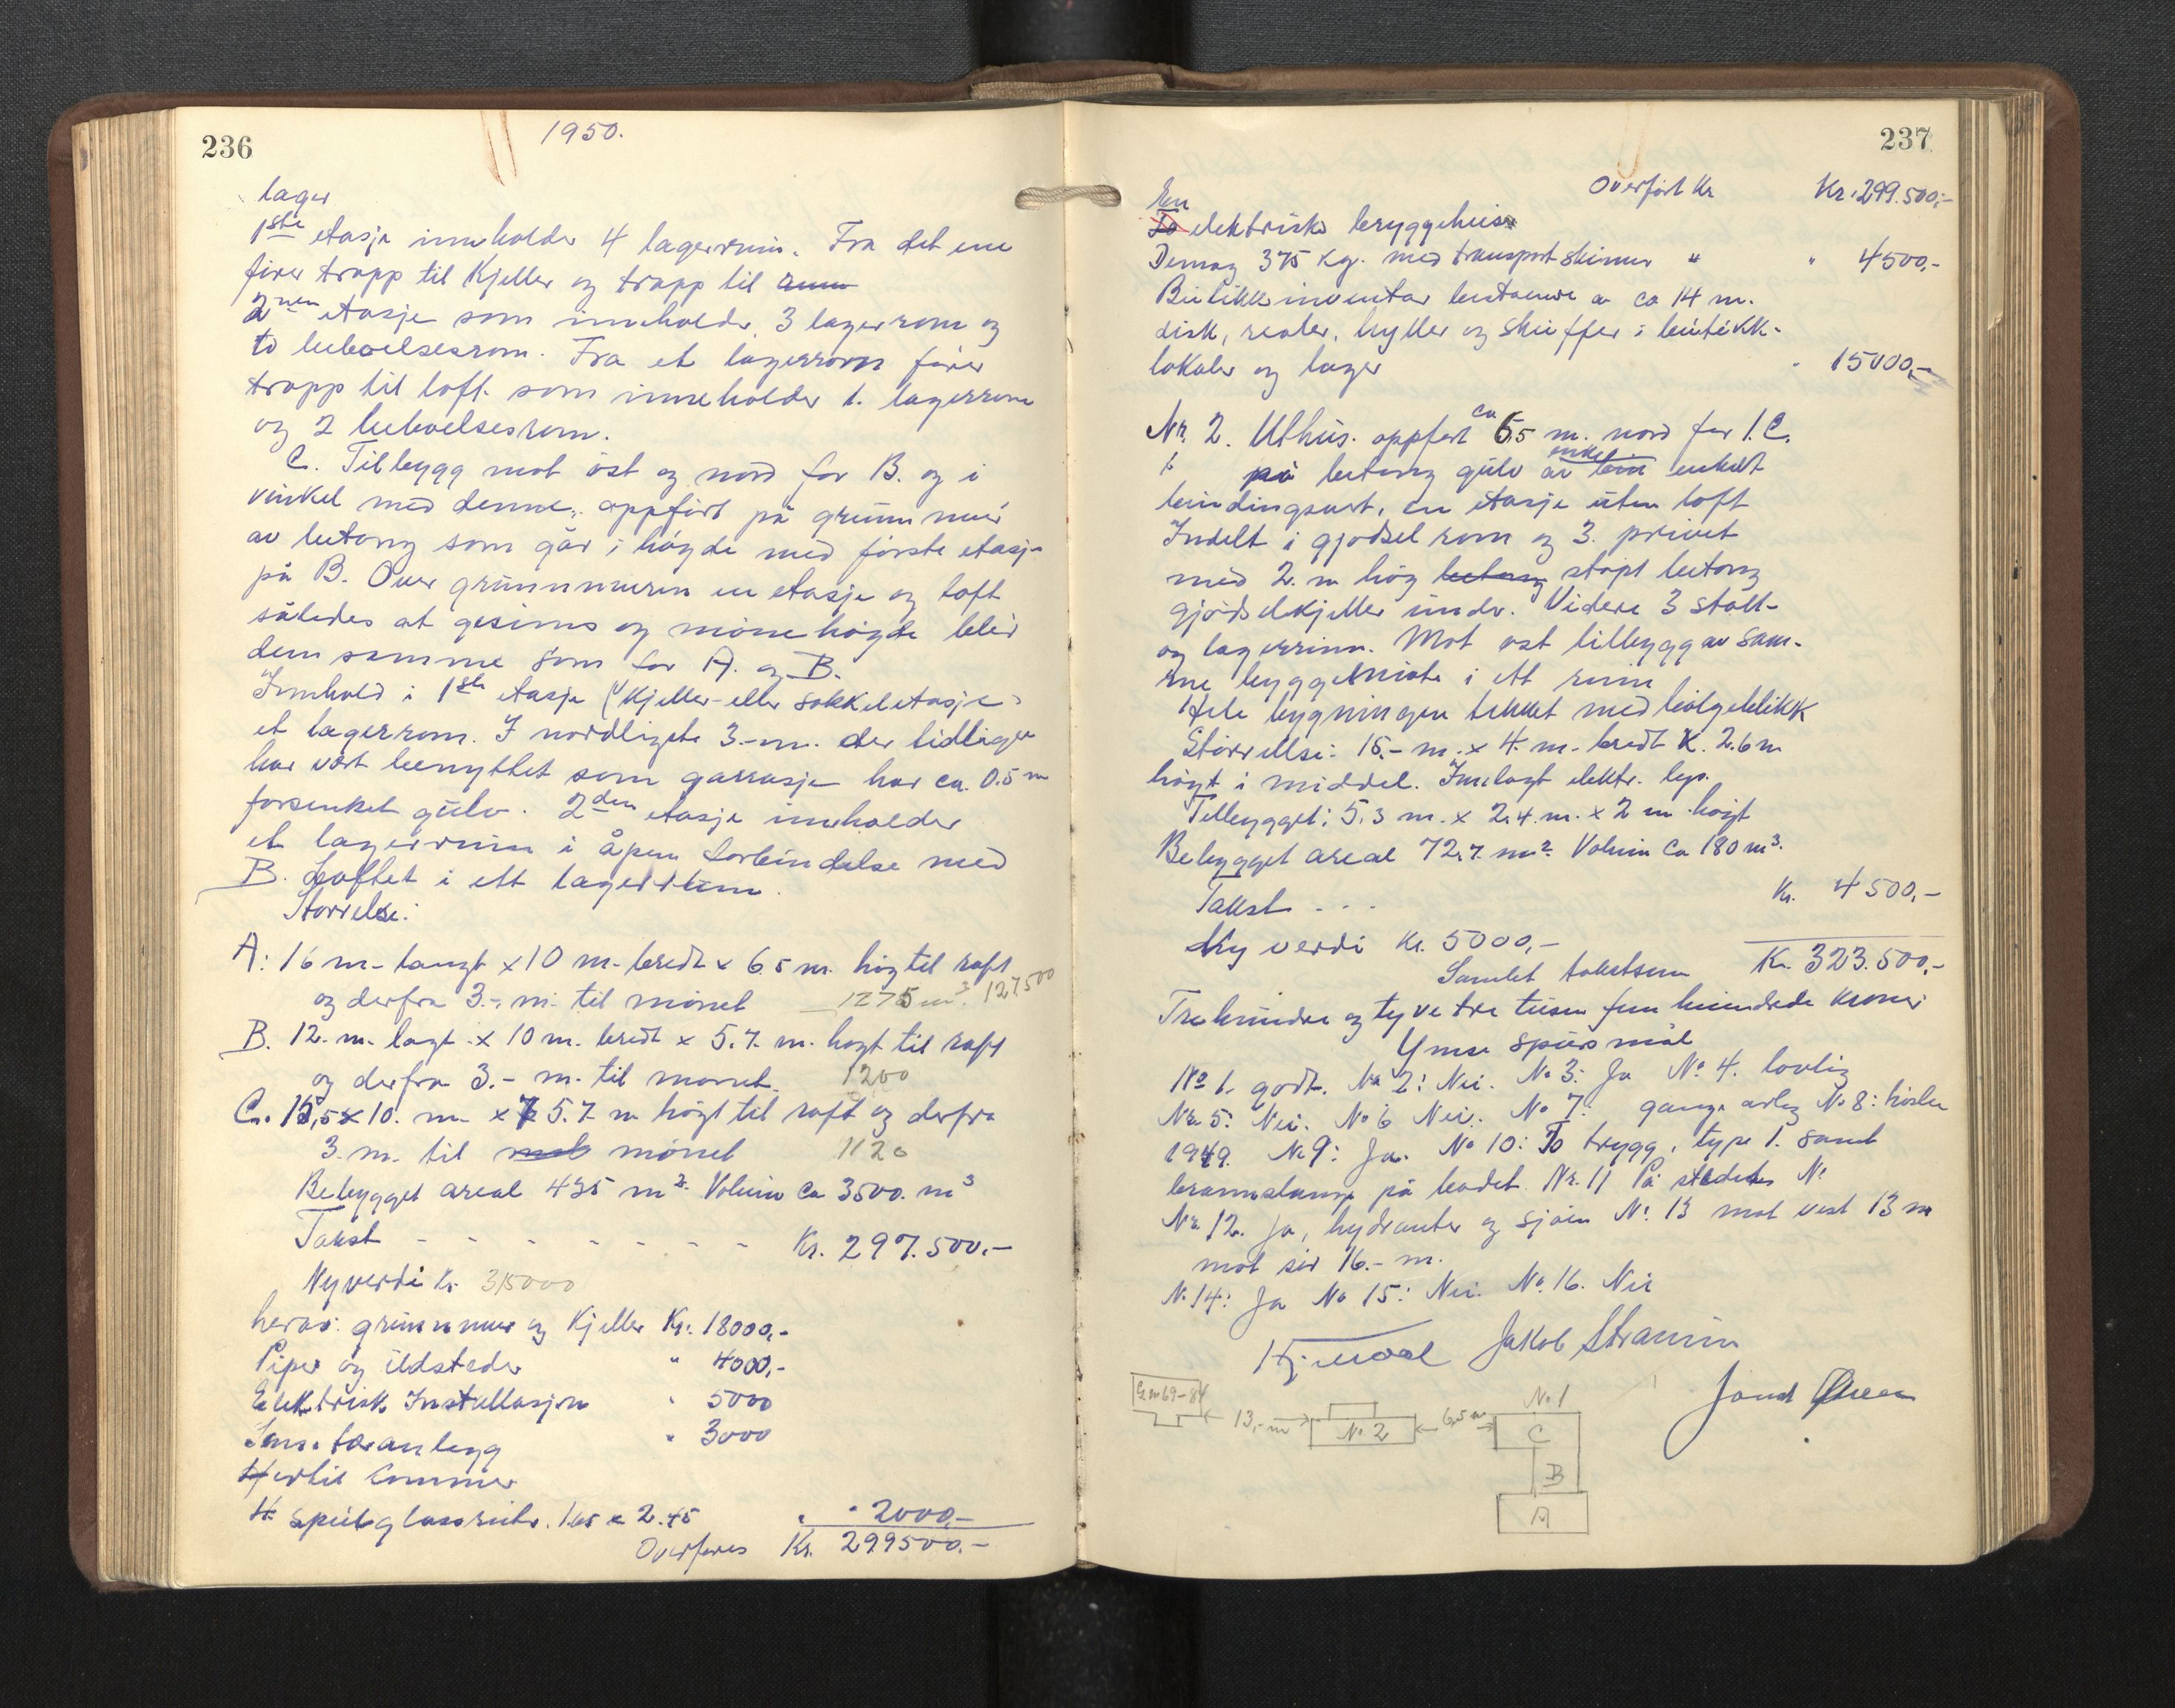 236
1950.
lager
1ste etasje inneholder 4 lagerrum. Fra det ene
fører trapp til Kjeller og trapp til
2nen etasje som inneholder 3 lagerrom og
to beboelsesrom. Fra et lagerrom fører
trapp til loft som inneholder 1. lagerrom
og 2 beboelsesrom.
C. Tilbygg mot øst og nord for B. og i
vinkel med denne, oppført på grunnmur
av betong som går i høyde med første etasje
på B. Over grunnmuren en etasje og loft
således at gesims og mønehøyde blir
den samme som for A. og B.
Innhold i 1ste etasje (Kjeller- eller sokkeletasje)
et lagerrom. I nordligste 3.-m. der tidligere
har vært benyttet som garrasje har ca. 0.5 m
forsenket gulv. 2den etasje inneholder
et lagerrum i åpen forbindelse med
B. Loftet i ett lagerrum.
Størrelse:
A: 16 m- langt x 10 m- bredt x 6.5 m. høg til raft
og derfra 3.- m. til mønet 1275 m3. 127.500
B. 12. m. lagt x 10 m. bredt x 5.7. m. høgt til raft
og derfra 3.- m. til mønet. 1200
C. 15,5 x 10. m x 5.7 m høgt til raft og derfra
3. m. til mønet 1120
Bebygget areal 435 m2. Volum ca 3500. m3
Takst - - - - - - - Kr. 297.500.-
Nyverdi Kr 315000
herav: grunnmur og Kjeller Kr. 18000,-
Piper og ildsteder " 4000,-
Elektrisk Installasjon " 5000
Sanitæranlegg " 3000
Hertil kommer
4 speilglassruter. 1.65 x 2.45 " 2000,-
Overføres Kr. 299500.-
237
Overført Kr Kr. 299.500,-
En
To elektrisk bryggeheis
Demag 375 kg. med transportskinner " " 4500,-
Butikkinventar bestående av ca 14 m.
disk, reoler, hyller og skuffer i butikk-
lokaler og lager " 15000,-
Nr. 2. Uthus. oppført ca 6.5 m. nord for 1.C.
på betong gulv av enkelt
bindingsverk, en etasje uten loft
Indelt i gjødselrom og 3. privet
med 2. m høg betong støpt betong
gjødselkjeller under. Videre 3 stall-
og lagerrum. Mot øst tilbygg av sam-
me byggemåte i ett rum
Hele bygningen tekket med bølgeblikk
Størrelse: 15.- m. x 4. m. bredt x. 2.6 m
høgt i middel. Innlagt elektr. lys.
Tilbygget: 5.3 m. x 2.4. m. x 2 m høgt
Bebygget areal 72.7 m2. Volum ca 180 m3.
Takst - - - Kr. 4500,-
Ny verdi Kr. 5000,-
Samlet takstsum Kr. 323.500,-
Trehundre og tyve tre tusen fem hundrede kroner
Ymse spørsmål
No 1. godt. No 2: Nei. No 3: Ja No 4. lovlig
No 5: Nei. No 6 Nei. No 7: gange årlig No 8: høsten
1949. No 9: Ja. No 10: To trygg, type 1. samt
brannslange på badet. Nr. 11 På stedets
Nr. 12. Ja, hydranter og sjøen No 13 mot vest 13 m
mot sør 16.- m.
No 14: Ja No 15: Nei. No 16. Nei
Jakob Stramm
G.nr 69-84
13,- m
No 2
6,5 m
No 1
C
B
A